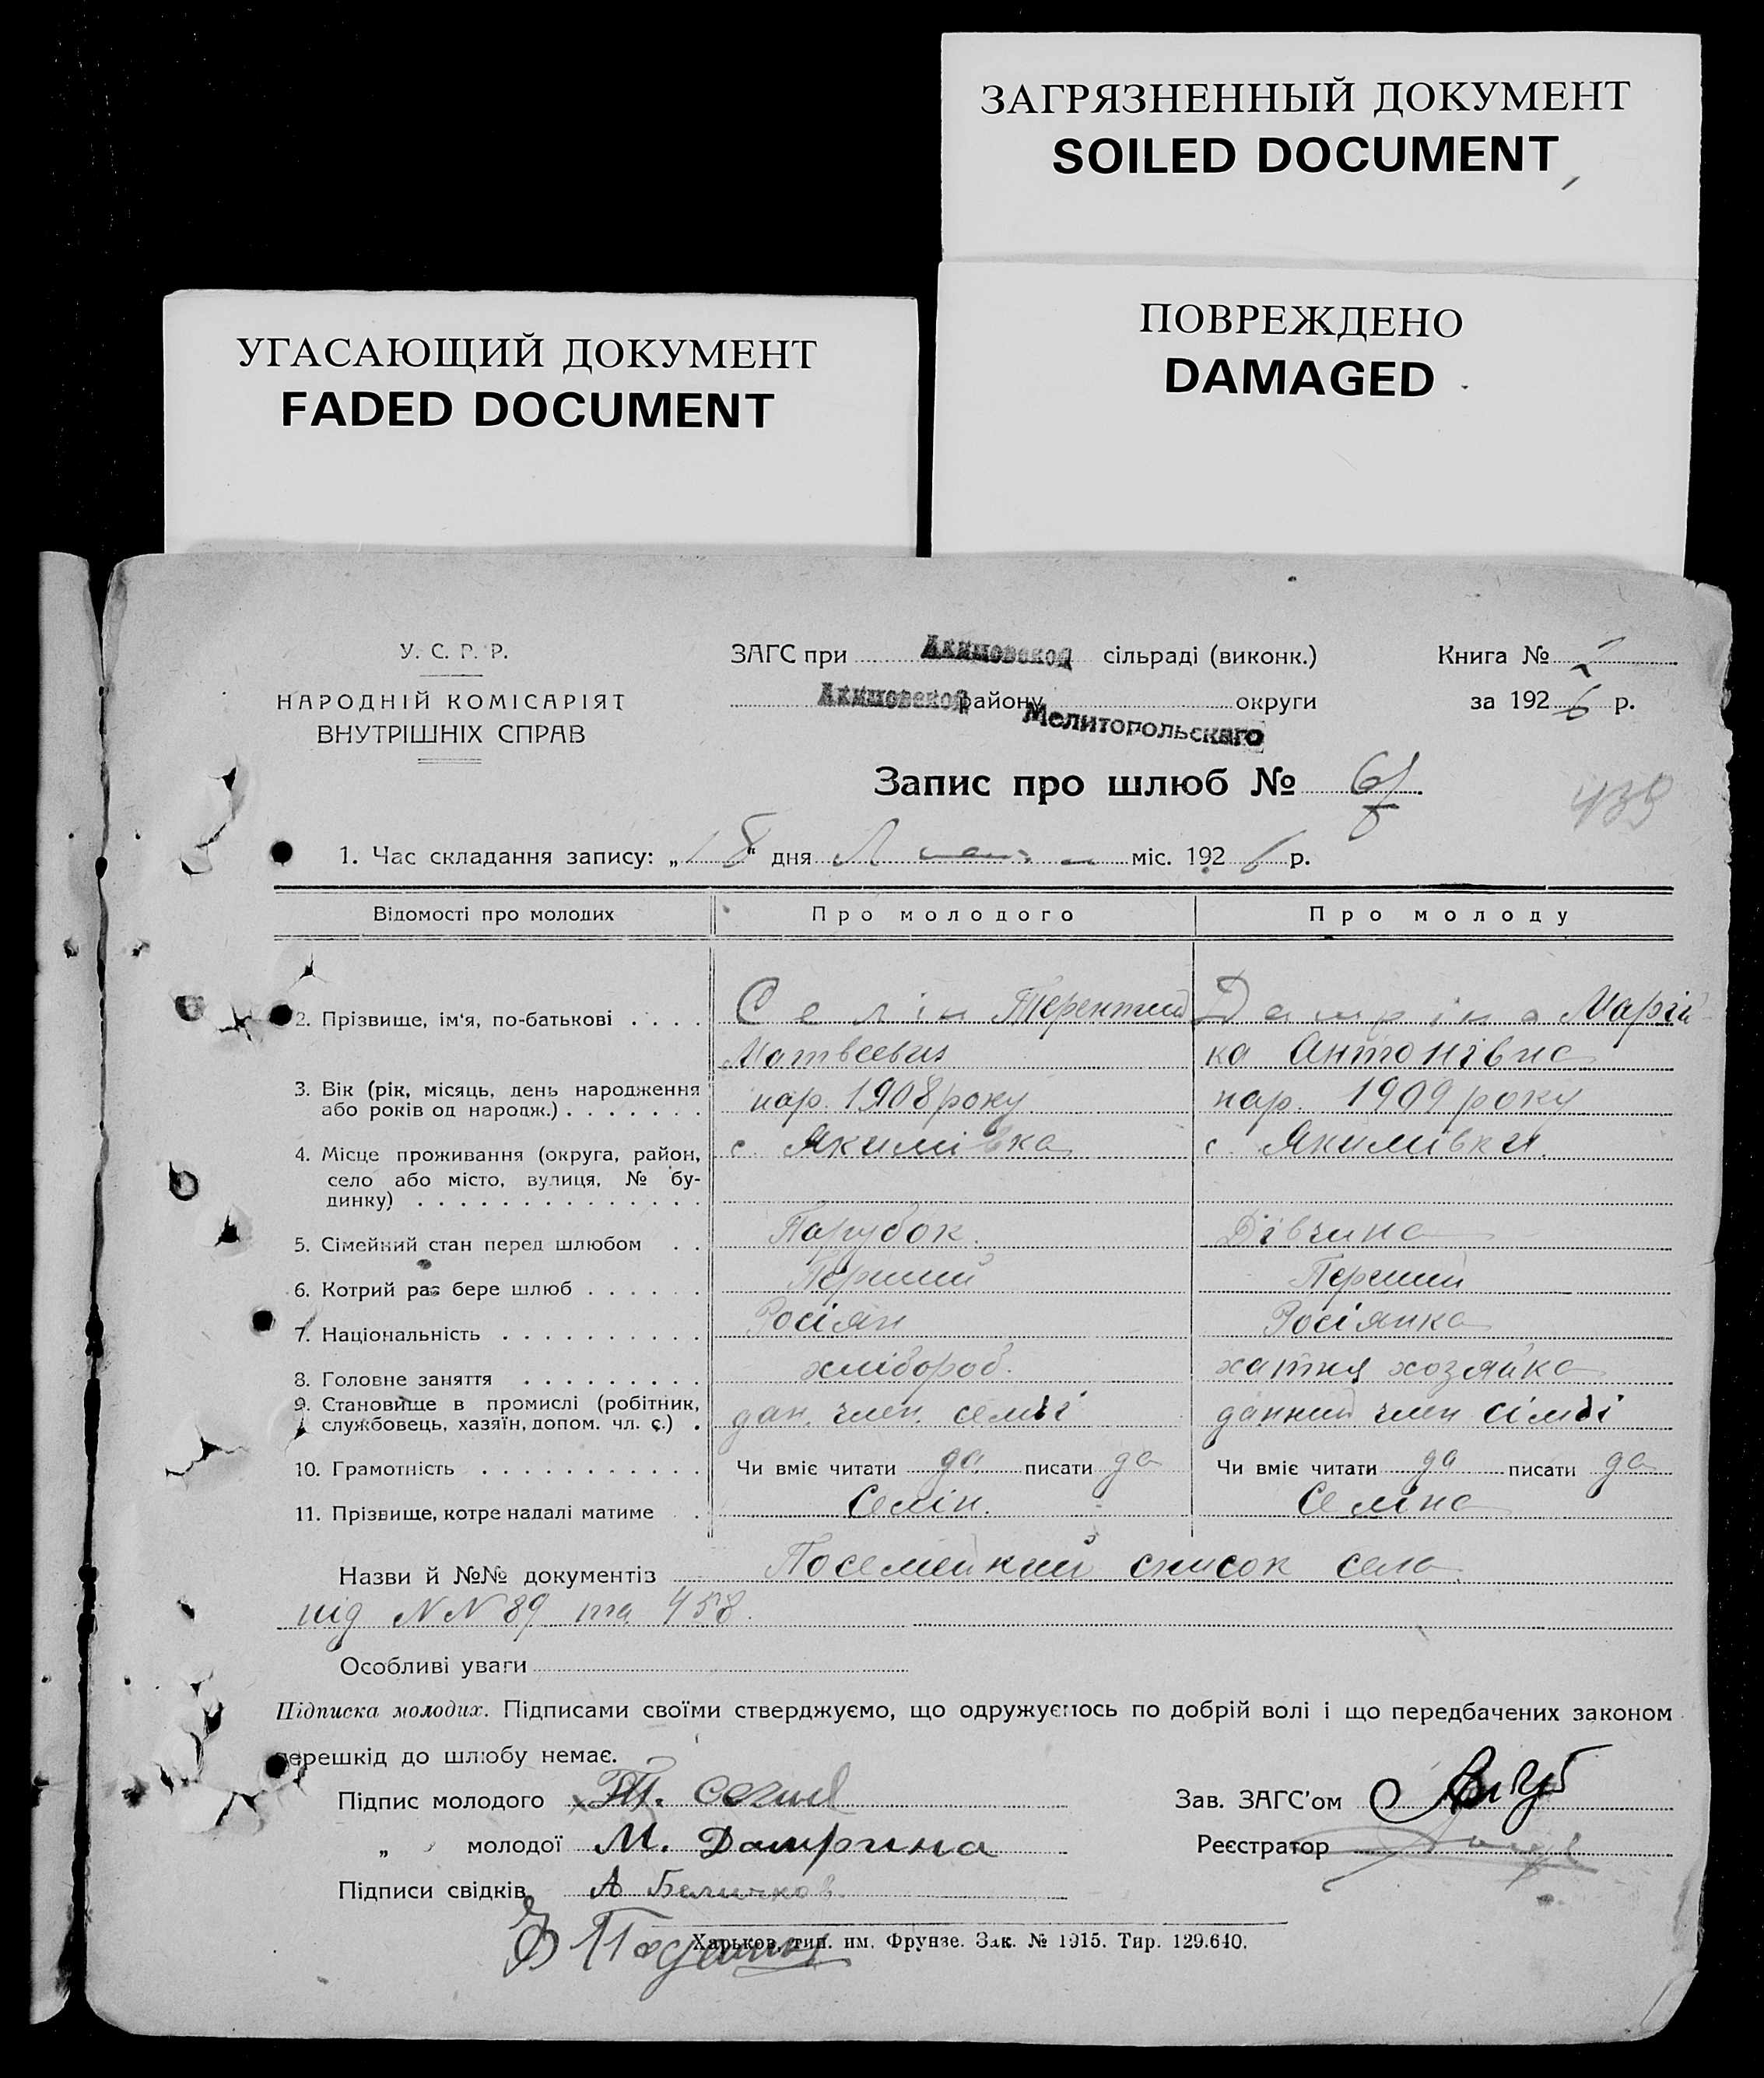 ЗАГРЯЗНЕННЫЙ ДОКУМЕНТ
SOILED DOCUMENT
УГАСАЮЩИЙ ДОКУМЕНТ
FADED DOCUMENT
ПОВРЕЖДЕНО
DAMAGED
У. С. Р. Р.
НАРОДНІЙ КОМІСАРІЯТ
ВНУТРІШНІХ СПРАВ
ЗАГС при Акимовской сільраді (виконк.)
Акимовской району Мелитопольскаго округи
Книга №
за 1926 р.
Запис про шлюб №
439
1. Час складання запису: „18" дня міс. 1926 р.
Відомості про молодих Про молодого Про молоду
2. Прізвище, ім'я, по-батькові . . . . Селін Терентий Матвеевич Марій-
ка Антонівна
3. Вік (рік, місяць, день народження або років од народж.) . . . . . . . нар. 1908 року нар. 1909 року
4. Місце проживання (округа, район, село або місто, вулиця, № будинку) . . . . . . . . . . . . . . с. Якимівка с. Якимівки
5. Сімейний стан перед шлюбом . . Парубок. Дівчина
6. Котрий раз бере шлюб . . . . . . Перший Перший
7. Національність . . . . . . . . . . Росіян Росіянка
8. Головне заняття . . . . . . . . . хлібороб. хатня хозяйка
9. Становище в промислі (робітник, службовець, хазяїн, допом. чл. с.) . член. семьі член сімьї
10. Грамотність . . . . . . . . . . . Чи вміє читати да писати да Чи вміє читати да писати да
11. Прізвище, котре надалі матиме . Селін. Селіна
Назви й №№ документів Посемейний список села
під NN 89 та 458.
Особливі уваги
Підписка молодих. Підписами своїми стверджуємо, що одружуємось по добрій волі і що передбачених законом
перешкід до шлюбу немає.
Підпис молодого Т. Зав. ЗАГС'ом
„ молодої М. Датрина Реєстратор
Підписи свідків А
Харьков, тип. им. Фрунзе. Зак. № 1915. Тир. 129.640.